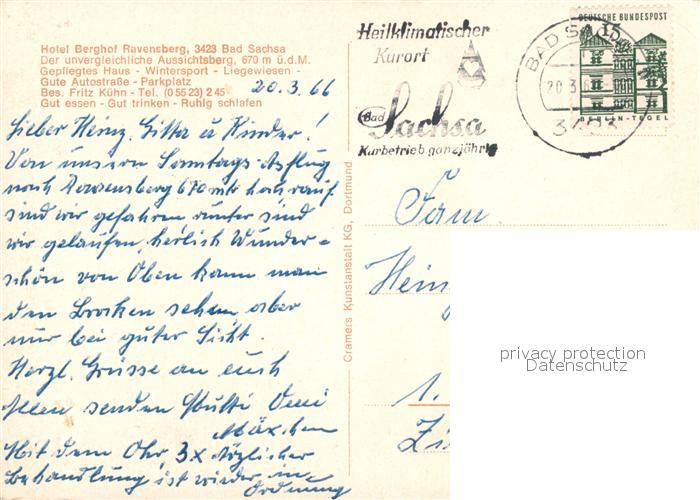 Hotel Berghof Ravensberg, 3423 Bad Sachsa
Der unvergleichliche Aussichtsberg, 670 m ü.d.M.
Gepflegtes Haus - Wintersport - Liegewiesen -
Gute Autostraße - Parkplatz
Bes. Fritz Kühn - Tel. (0 55 23) 2 45
Gut essen - Gut trinken - Ruhig schlafen
20.3.66
Lieber Heinz, Gitta u Kinder!
Von unsern Sonntags-Asflug
nach Rawensberg 670 mtr hoch rauf
sind wir gefahren runter sind
wir gelaufen, herlich Wunder=
schön von Oben kann man
den Brocken sehen, aber
nur bei guter Sicht.
Herzl. Grüsse an euch
Allen senden Mutti
Mit dem Ohr, 3x täglicher
Behandlung ist wieder in
Ordnung
Cramers Kunstanstalt KG, Dortmund
Heilklimatischer
Kurort
Bad
Sachsa
Kurbetrieb ganzjährig
BAD SA
20.3.6
3423
DEUTSCHE BUNDESPOST
15
BERLIN-TEGEL
Fam.
Hein
1.
privacy protection
Datenschutz